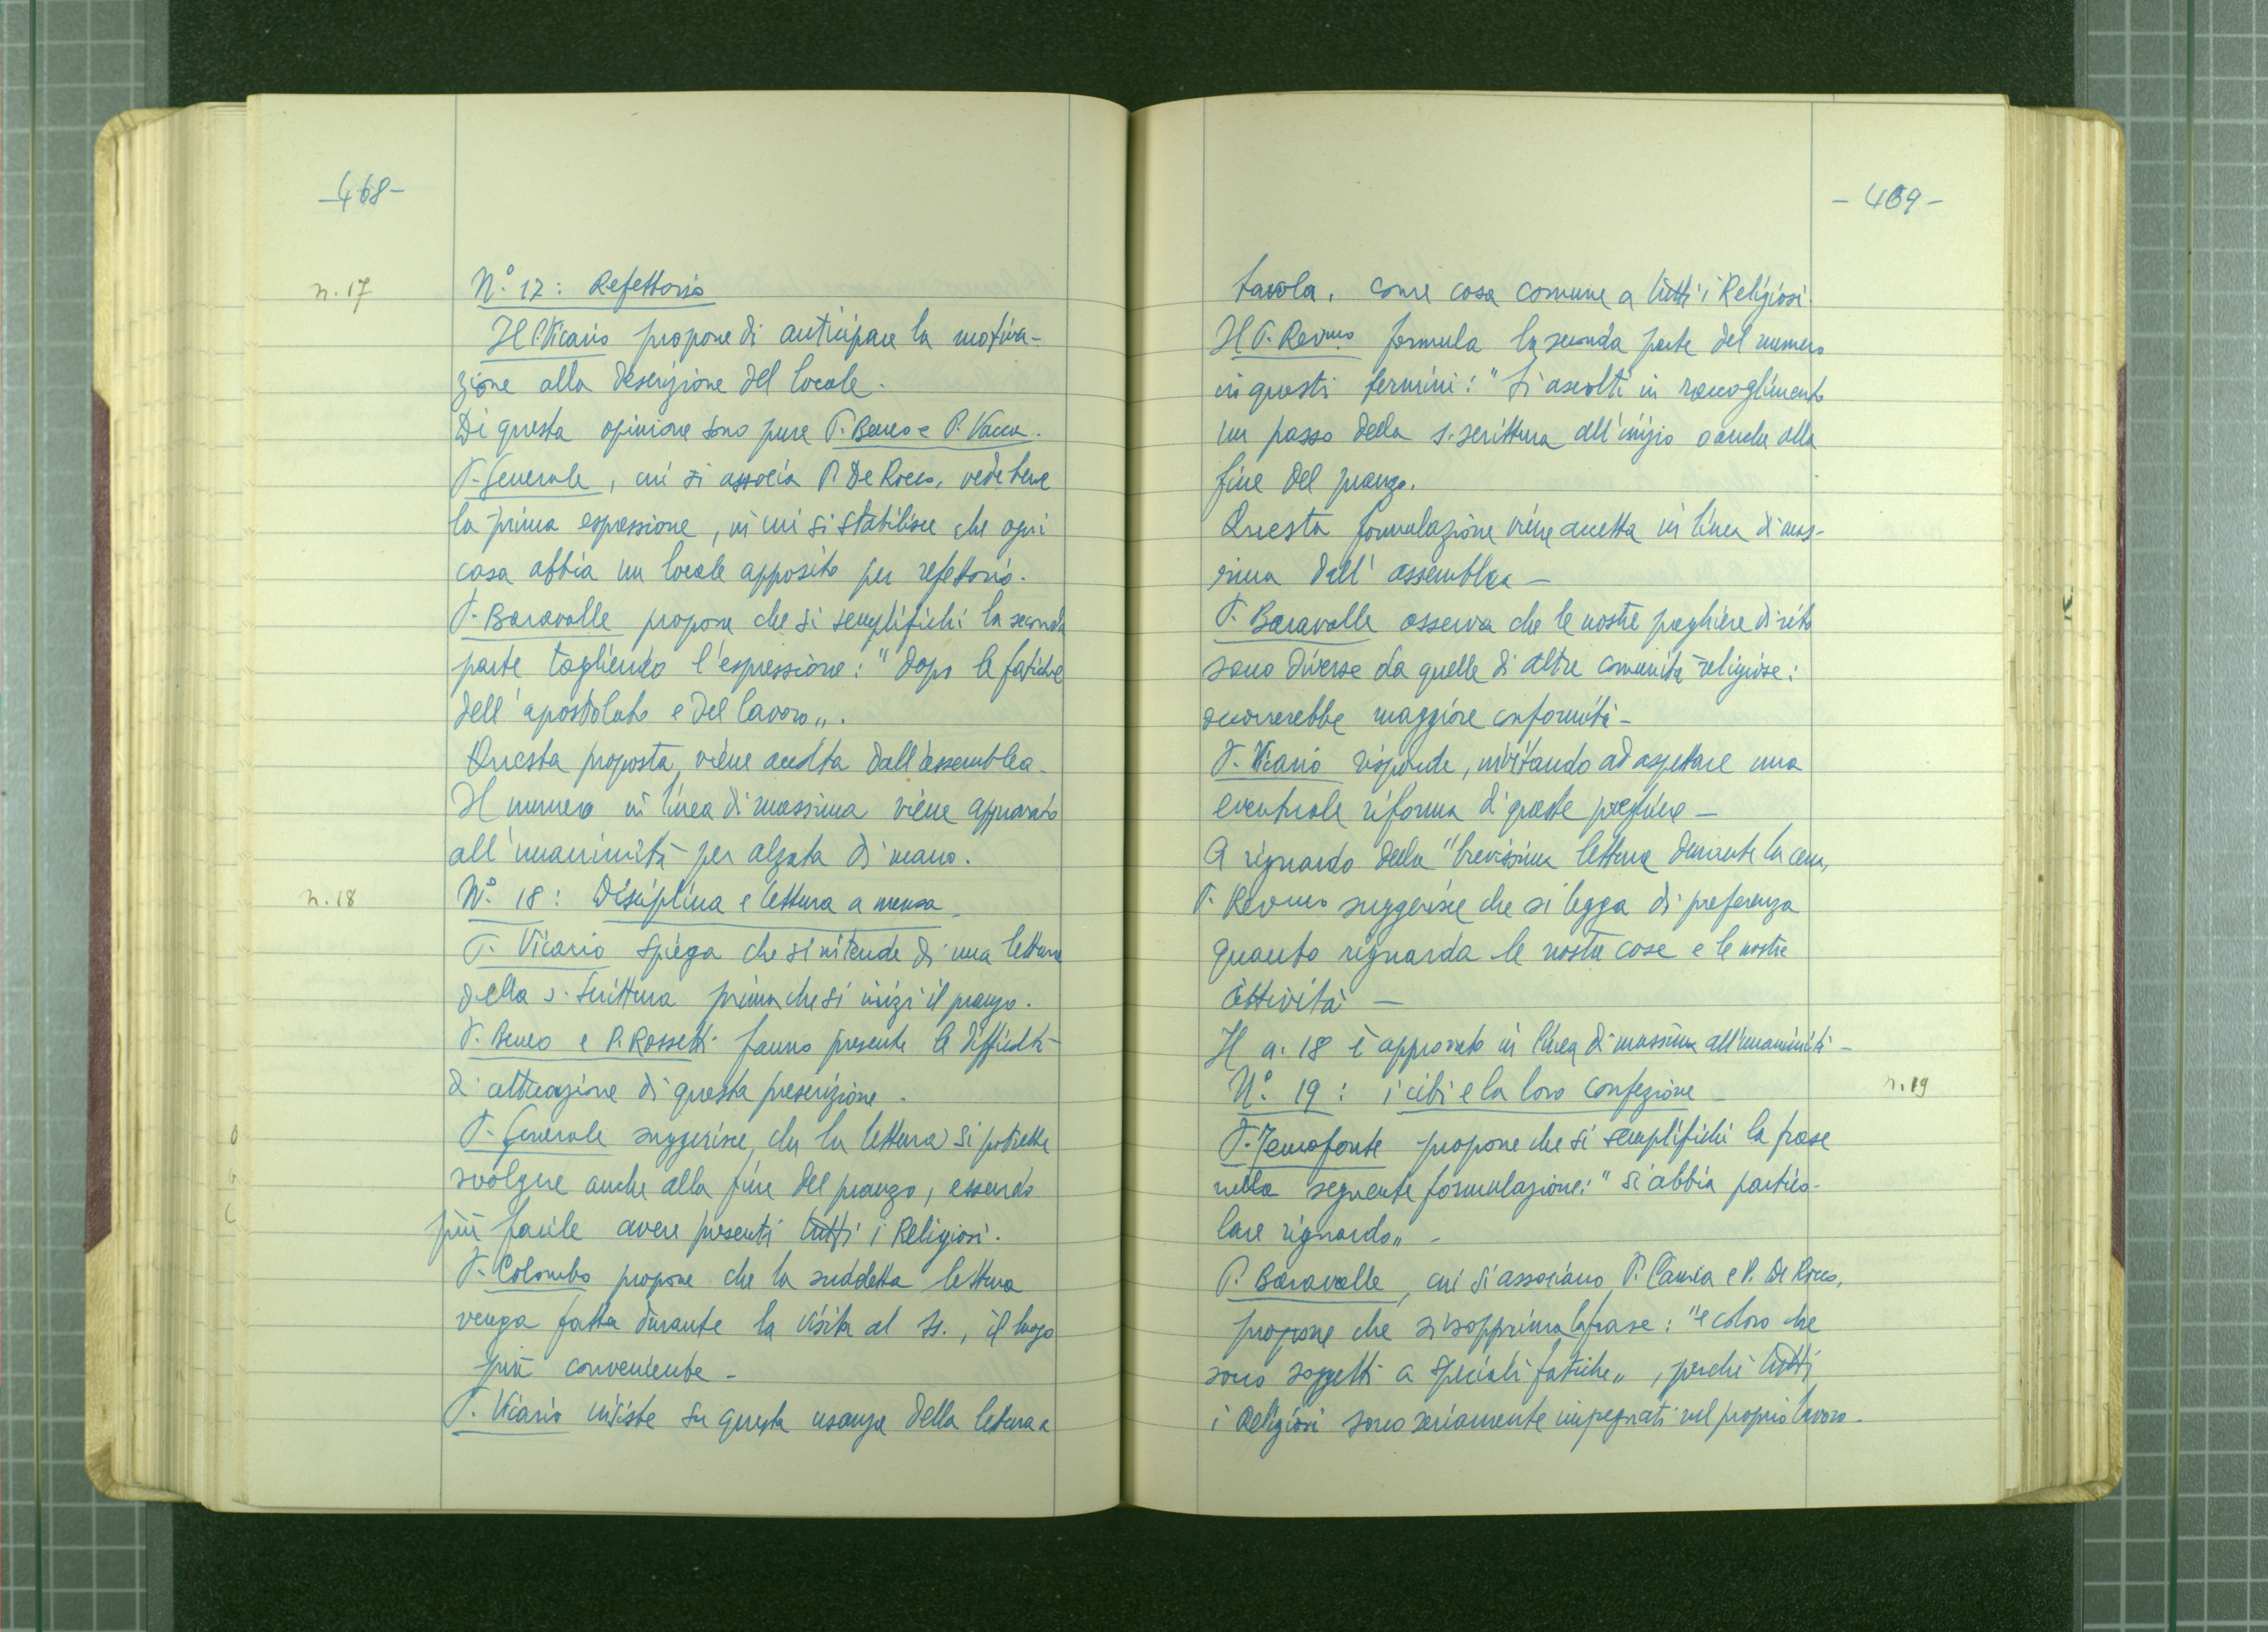 -468-
n. 17
N.° 17: Refettorio
Il P. Vicario propone di anticipare la motiva-
zione alla descrizione del locale.
Di questa opinione sono pure P. Beneo e P. Vacca.
P. Generale, cui si associa P. De Rocco, vede bene
la prima espressione, in cui si stabilisce che ogni
casa abbia un locale apposito per refettorio.
P. Baravalle propone che si semplifichi la seconda
parte togliendo l'espressione: "dopo le fatiche
dell'apostolato e del lavoro".
Questa proposta viene accolta dall'assemblea.
Il numero in linea di massima viene approvato
all'unanimità per alzata di mano.
n. 18
N.° 18: Disciplina e lettura a mensa
P. Vicario spiega che si intende di una lettura
della s. Scrittura prima che si inizi il pranzo.
P. Beneo e P. Rossetti fanno presente le difficoltà
di attuazione di questa prescrizione.
P. Generale suggerisce, che la lettura si potrebbe
svolgere anche alla fine del pranzo, essendo
più facile avere presenti tutti i Religiosi.
P. Colombo propone che la suddetta lettura
venga fatta durante la visita al SS., il luogo
più conveniente -
P. Vicario insiste su questa usanza della lettura a
- 469 -
tavola, come cosa comune a tutti i Religiosi.
Il P. Rev.mo formula la seconda parte del numero
in questi termini: "Si ascolti in raccoglimento
un passo della s. scrittura all'inizio o anche alla
fine del pranzo.
Questa formulazione viene accetta in linea di mas-
sima dall'assemblea -
P. Baravalle osserva che le nostre preghiere di rito
sono diverse da quelle di altre comunità religiose:
occorrerebbe maggiore conformità -
P. Vicario risponde, invitando ad aspettare una
eventuale riforma di queste preghiere -
A riguardo della "brevissima lettura durante la cena,
P. Rev.mo suggerisce che si legga di preferenza
quanto riguarda le nostre cose e le nostre
attività -
Il n. 18 è approvato in linea di massima all'unanimità -
n. 19
N.° 19: i cibi e la loro confezione -
P. Temofonte propone che si semplifichi la frase
nella seguente formulazione: "si abbia partico-
lare riguardo" -
P. Baravalle, cui si associano P. Camia e P. De Rocco,
propone che si sopprima la frase: "e coloro che
sono soggetti a speciali fatiche", perchè tutti
i Religiosi sono seriamente impegnati nel proprio lavoro.